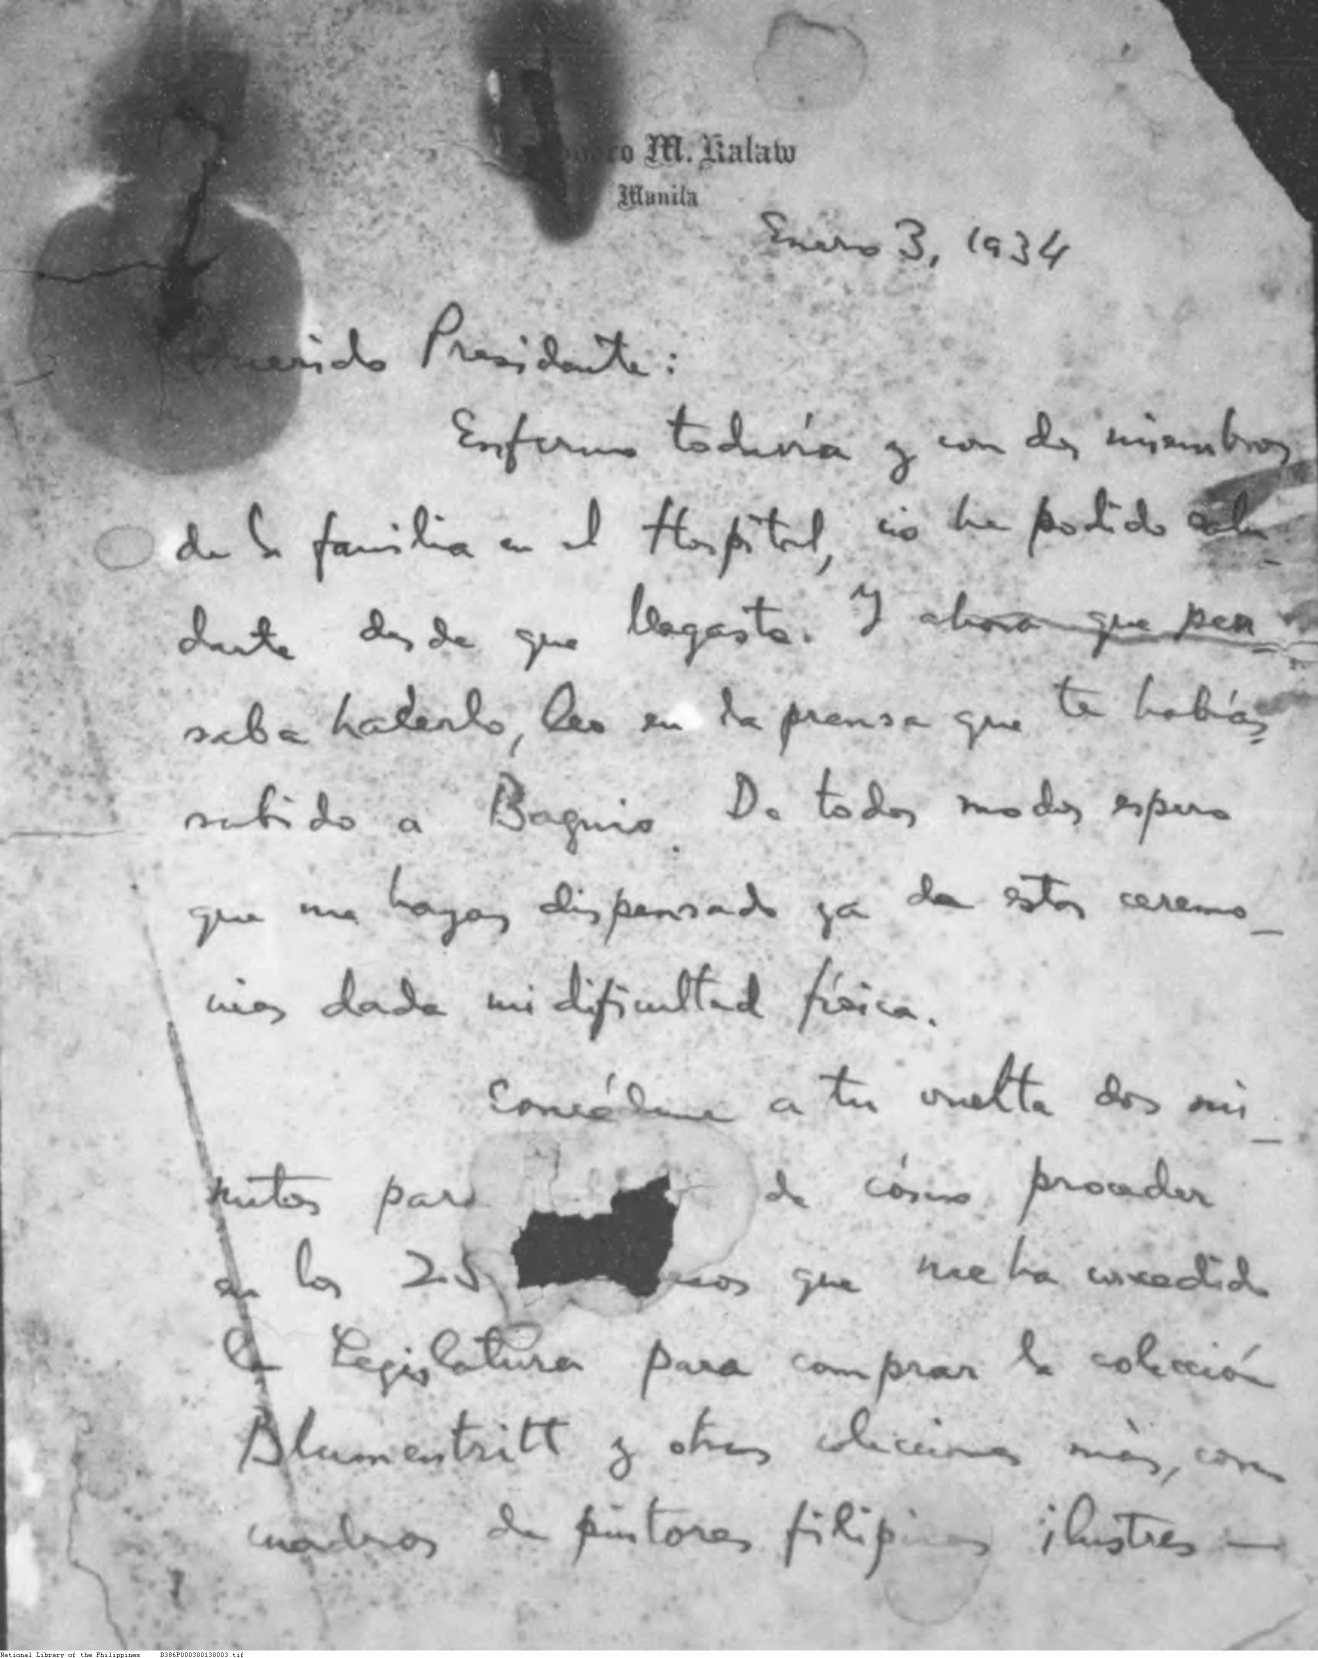 M. Kalaw
Manila
Enero 3, 1934
Querido Presidente:
Enfermo todavía y con dos miembros
de la familia en el Hospital, no he podido salu_
darte desde que llegaste. Y ahora que pen
saba hacerlo, leo en la prensa que te habías
subido a Baguio. De todos modos espero
que me hayas dispensado ya de estas ceremo_
nias dada mi dificultad física.
Concédeme a tu vuelta dos mi_
nutos para de cómo proceder
en los que me ha concedido
la Legislatura para comprar la colección
Blumentritt y otras colecciones más, como
cuadros de pintores filipinos ilustres —
National Library of the Philippines